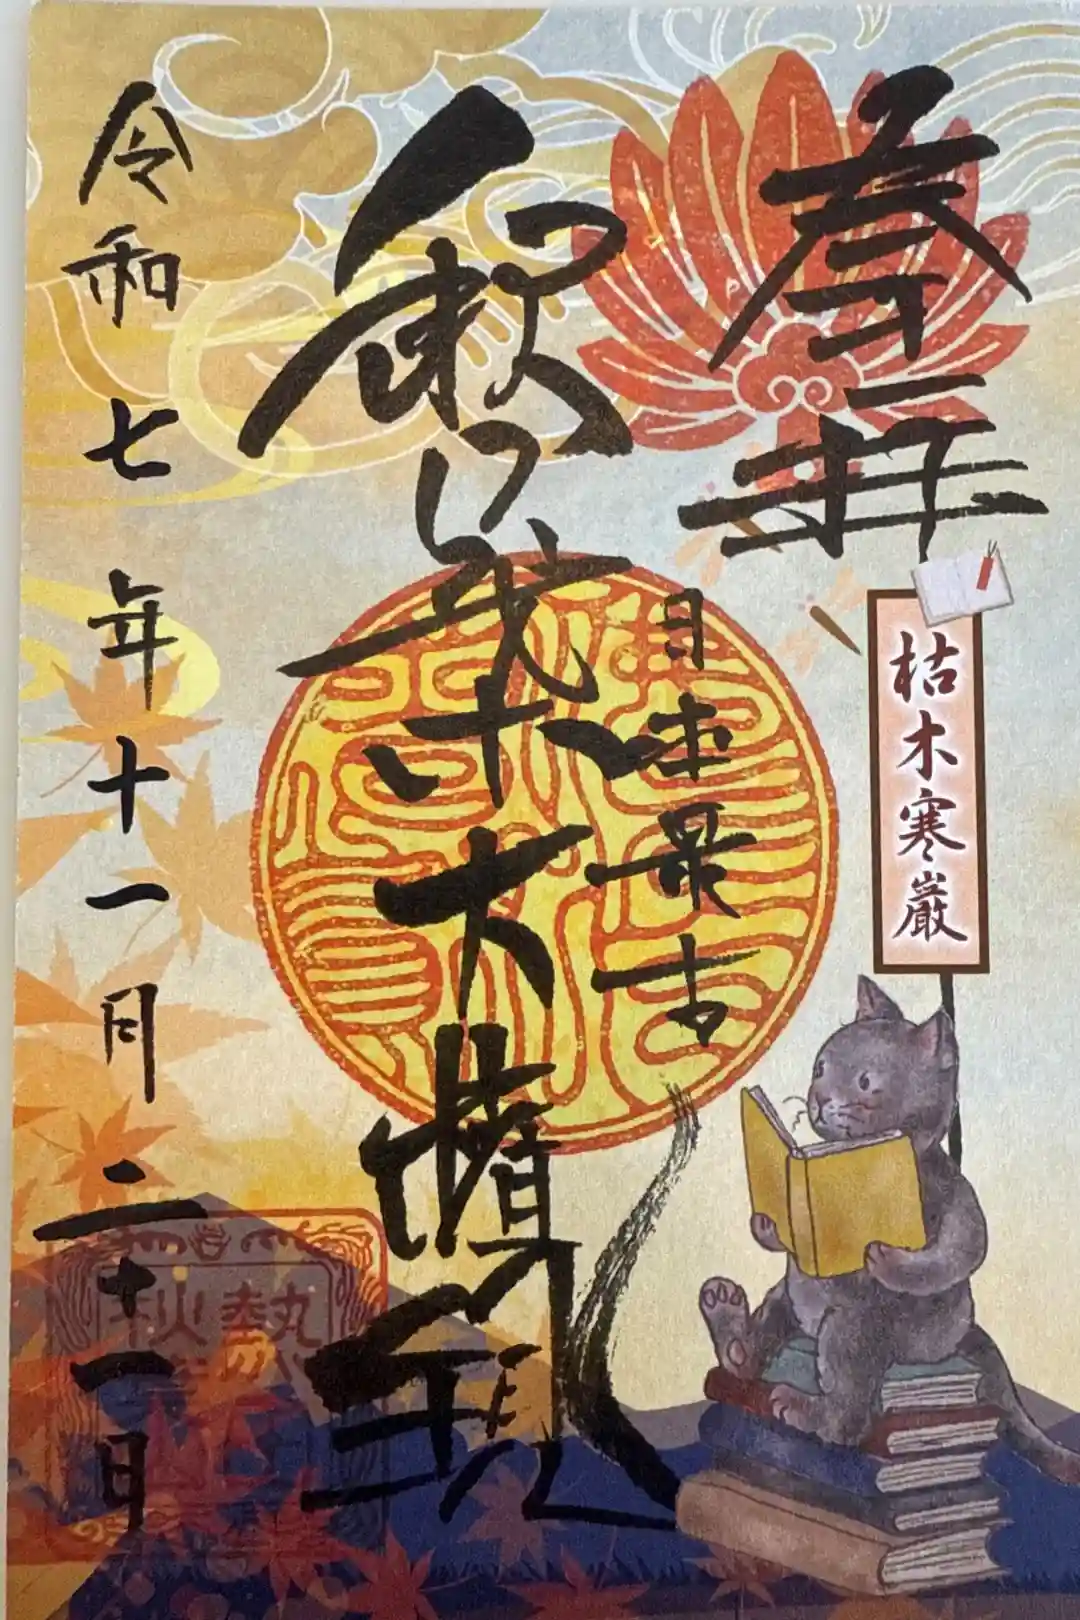 参拝
枯木寒巌
日本最古
秋葉大權現
令和七年十一月二十一日